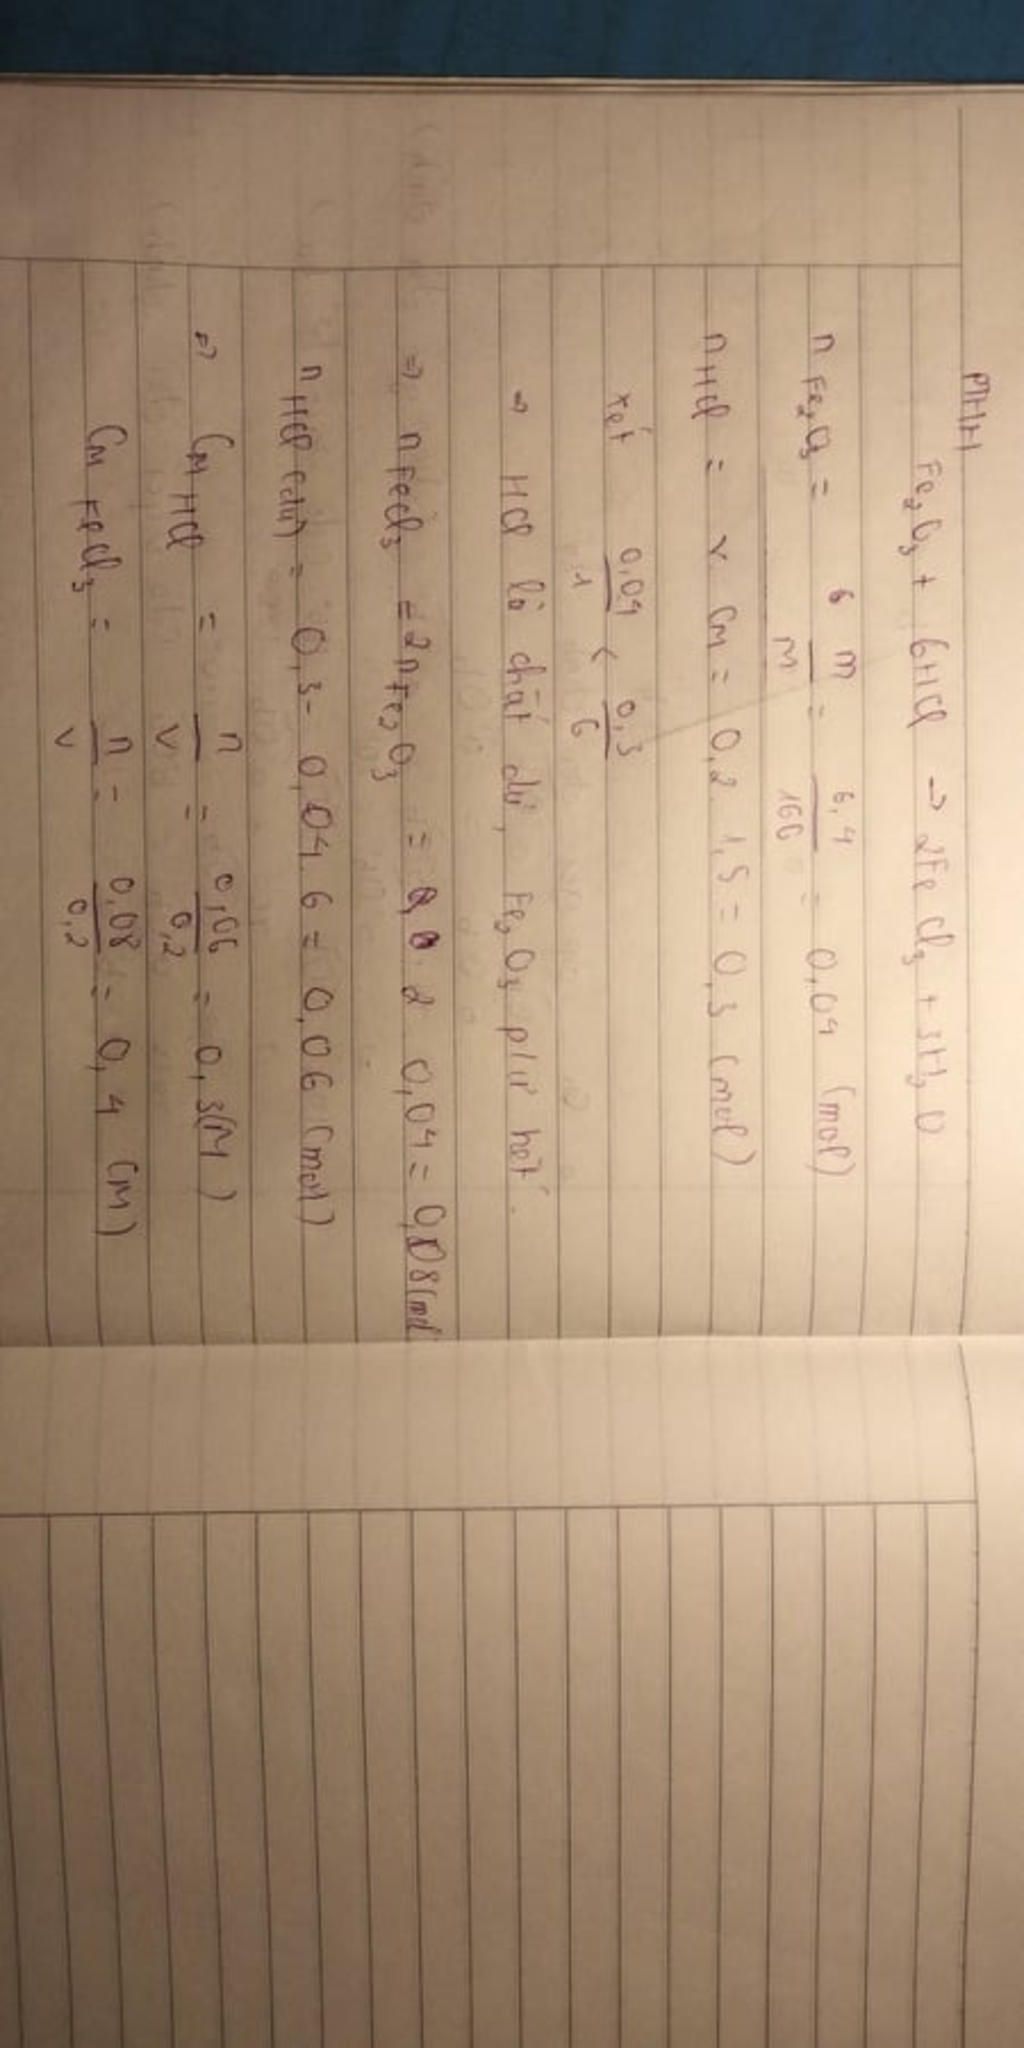 PTHH
Fe₂O₃ + 6HCl → 2FeCl₃ + 3H₂O
n Fe₂O₃ = m/M = 6,4/160 = 0,04 (mol)
n HCl = V. CM = 0,2. 1,5 = 0,3 (mol)
xét 0,04/1 < 0,3/6
⇒ HCl là chất dư, Fe₂O₃ p/ư hết.
⇒ n FeCl₃ = 2n Fe₂O₃ = 2 0,04 = 0,08 (mol
n HCl (dư) = 0,3 - 0,04. 6 = 0,06 (mol)
⇒ CM HCl = n/V = 0,06/0,2 = 0,3 (M)
CM FeCl₃ = n/V = 0,08/0,2 = 0,4 (M)